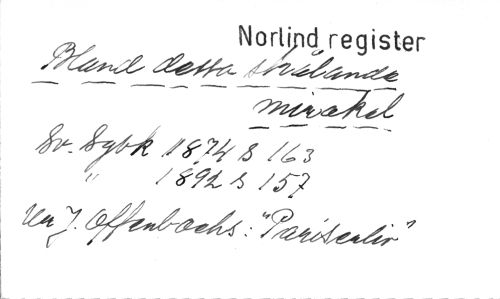 Norlind register
Bland dessa strålande
mirakel
Sv. Sgbk 1874 s 163
" 1892 s 157
Ur J. Offenbachs: "Parisenliv"